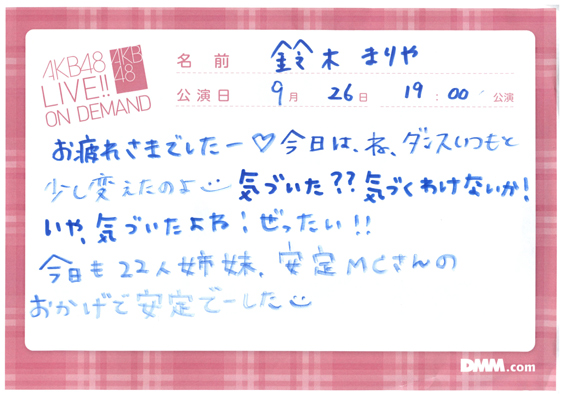 AKB48
LIVE!!
ON DEMAND
AKB
48
名前 鈴木まりや
公演日 9月 26日 19:00 公演
お疲れさまでしたー♡今日は、ね、ダンスいつもと
少し変えたのよ
気づいた??気づくわけないか!
いや、気づいたよね!ぜったい!!
今日も22人姉妹、安定MCさんの
おかげで安定でーした
DMM.com